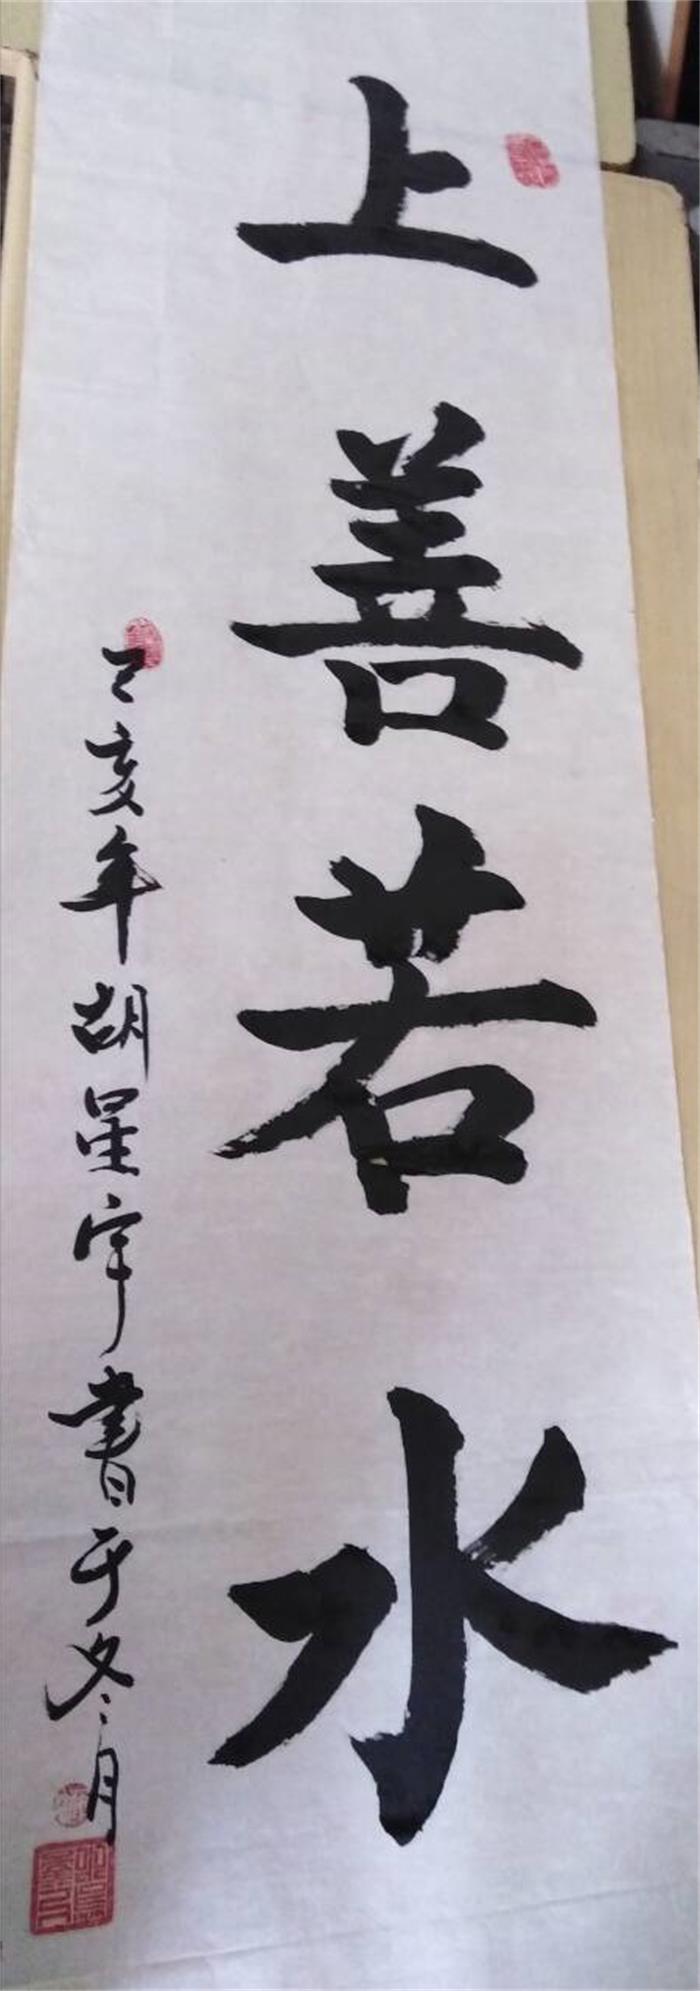 上善若水
己亥年胡星宇書于冬月